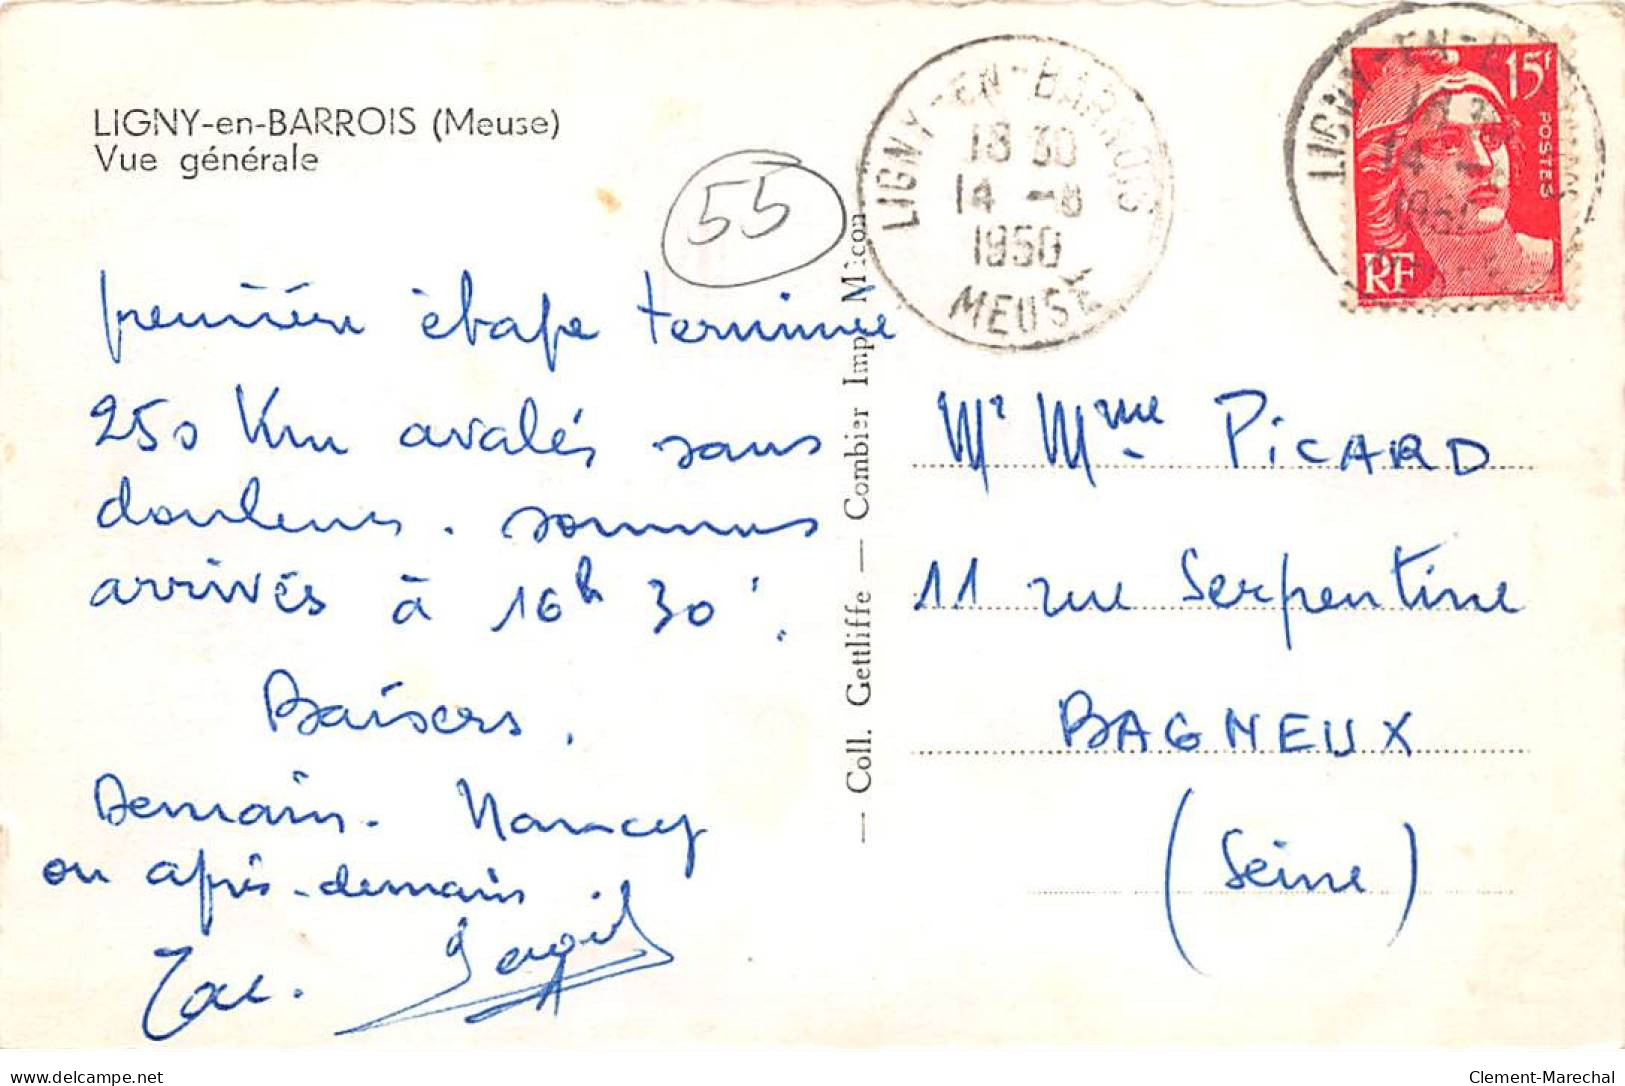 LIGNY-en-BARROIS (Meuse)
Vue générale
55
première étape terminée
250 Km avalés sans
douleurs. sommes
arrivés à 16h 30'.
Baisers.
Demain. Nancy
ou après-demain
— Coll. Gettliffe — Combier Imp. Mâcon
LIGNY-EN-BARROIS
18 30
14 -8
1950
MEUSE
15f
POSTES
RF
LIGNY-EN-B
14 -
Mr Mme PiCARD
11 rue Serpentine
BAGNEUX
(Seine)
delcampe.net
Clement-Marechal